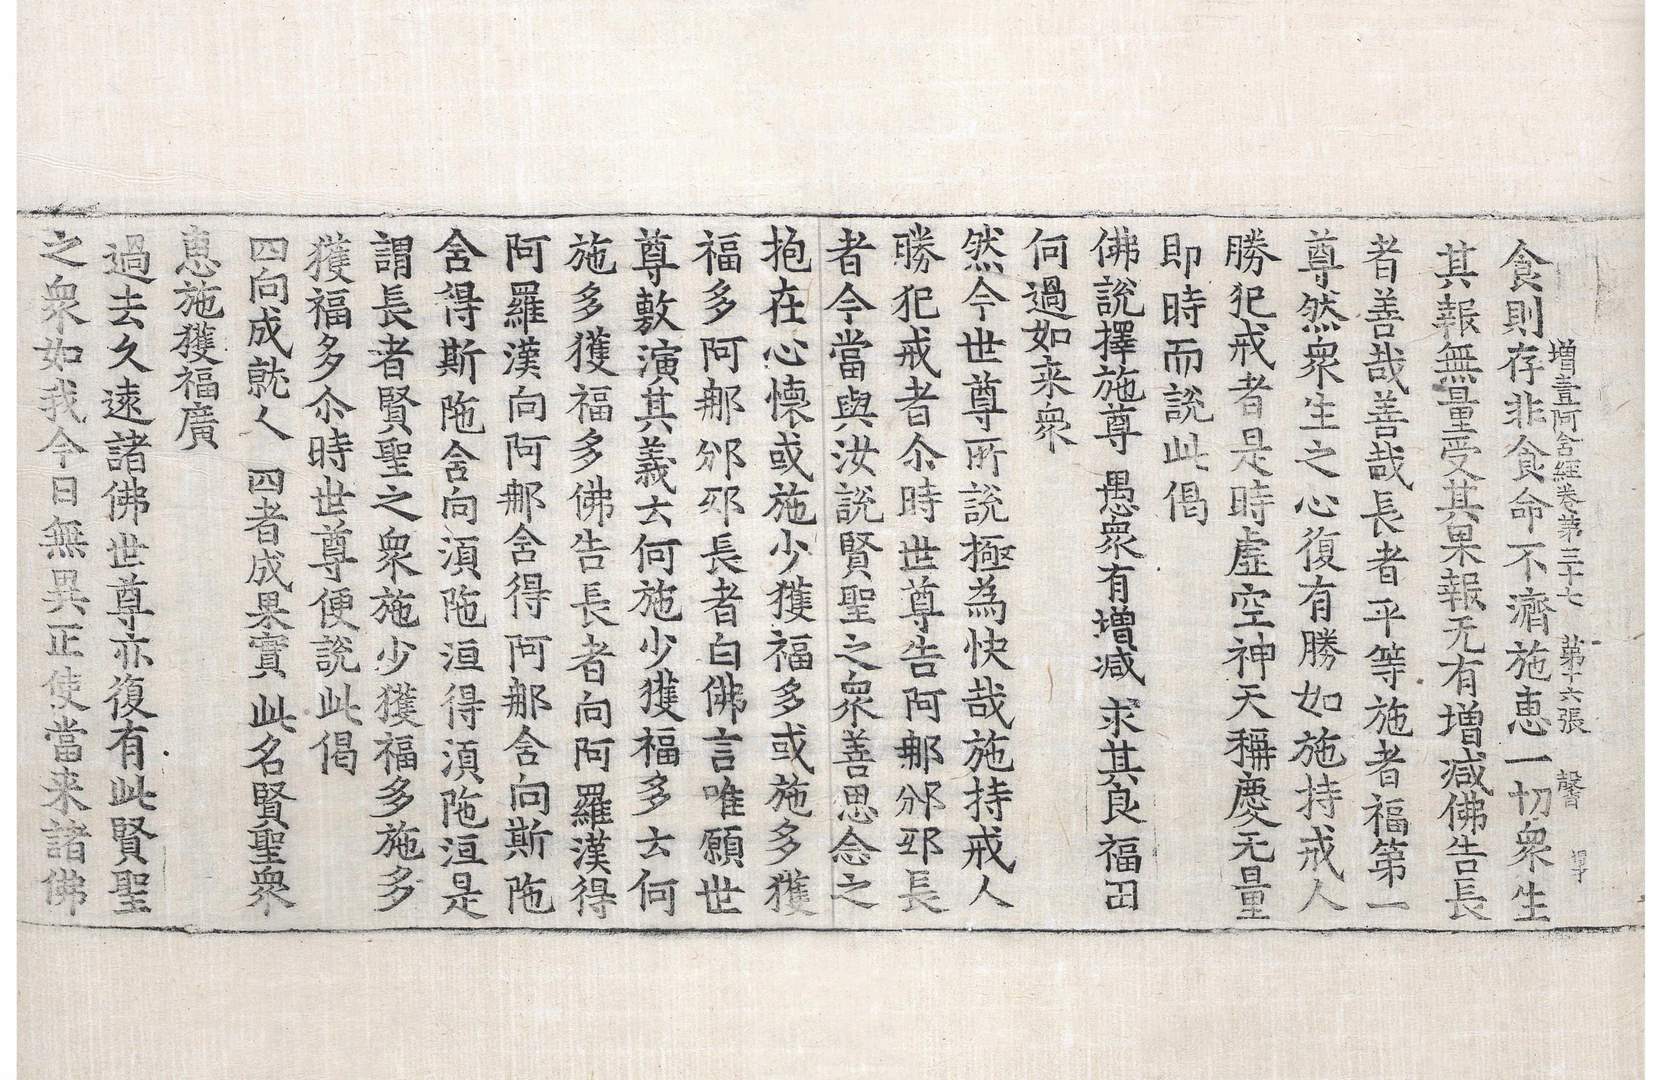 増壹阿含經卷第三十七 第十六張 馨
食則存非食命不濟施恵一切衆生
其報無量受其果報无有増減佛告長
者善哉善哉長者平等施者福第一
尊然衆生之心復有勝如施持戒人
勝犯戒者是時虛空神天稱慶无量
即時而說此偈
佛說擇施尊 愚衆有増减 求其良福田
何過如来衆
然今世尊所說極為快哉施持戒人
勝犯戒者尒時世尊告阿𨚗邠邸長
者今當與汝說賢聖之衆善思念之
抱在心懐或施少獲福多或施多獲
福多阿𨚗邠邸長者白佛言唯願世
尊敷演其義云何施少獲福多云何
施多獲福多佛告長者向阿羅漢得
阿羅漢向阿𨚗含得阿𨚗含向斯陁
含得斯陁含向湏陁洹得湏陁洹是
謂長者賢聖之衆施少獲福多施多
獲福多尒時世尊便說此偈
四向成就人 四者成果實 此名賢聖衆
恵施獲福廣
過去久遠諸佛世尊亦復有此賢聖
之衆如我今日無異正使當来諸佛